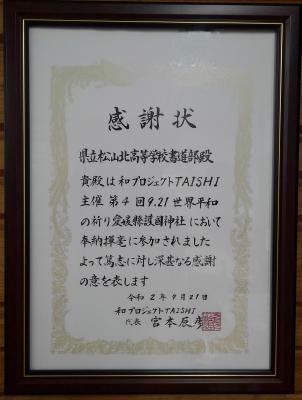 感謝状
県立松山北高等学校書道部殿
貴殿は和プロジェクトTAISHI
主催第4回9.21世界平和
の祈り愛媛縣護國神社において
奉納揮毫に参加されました
よって篤志に対し深甚なる感謝
の意を表します
令和2年9月21日
和プロジェクトTAISHI
代表 宮本辰彦